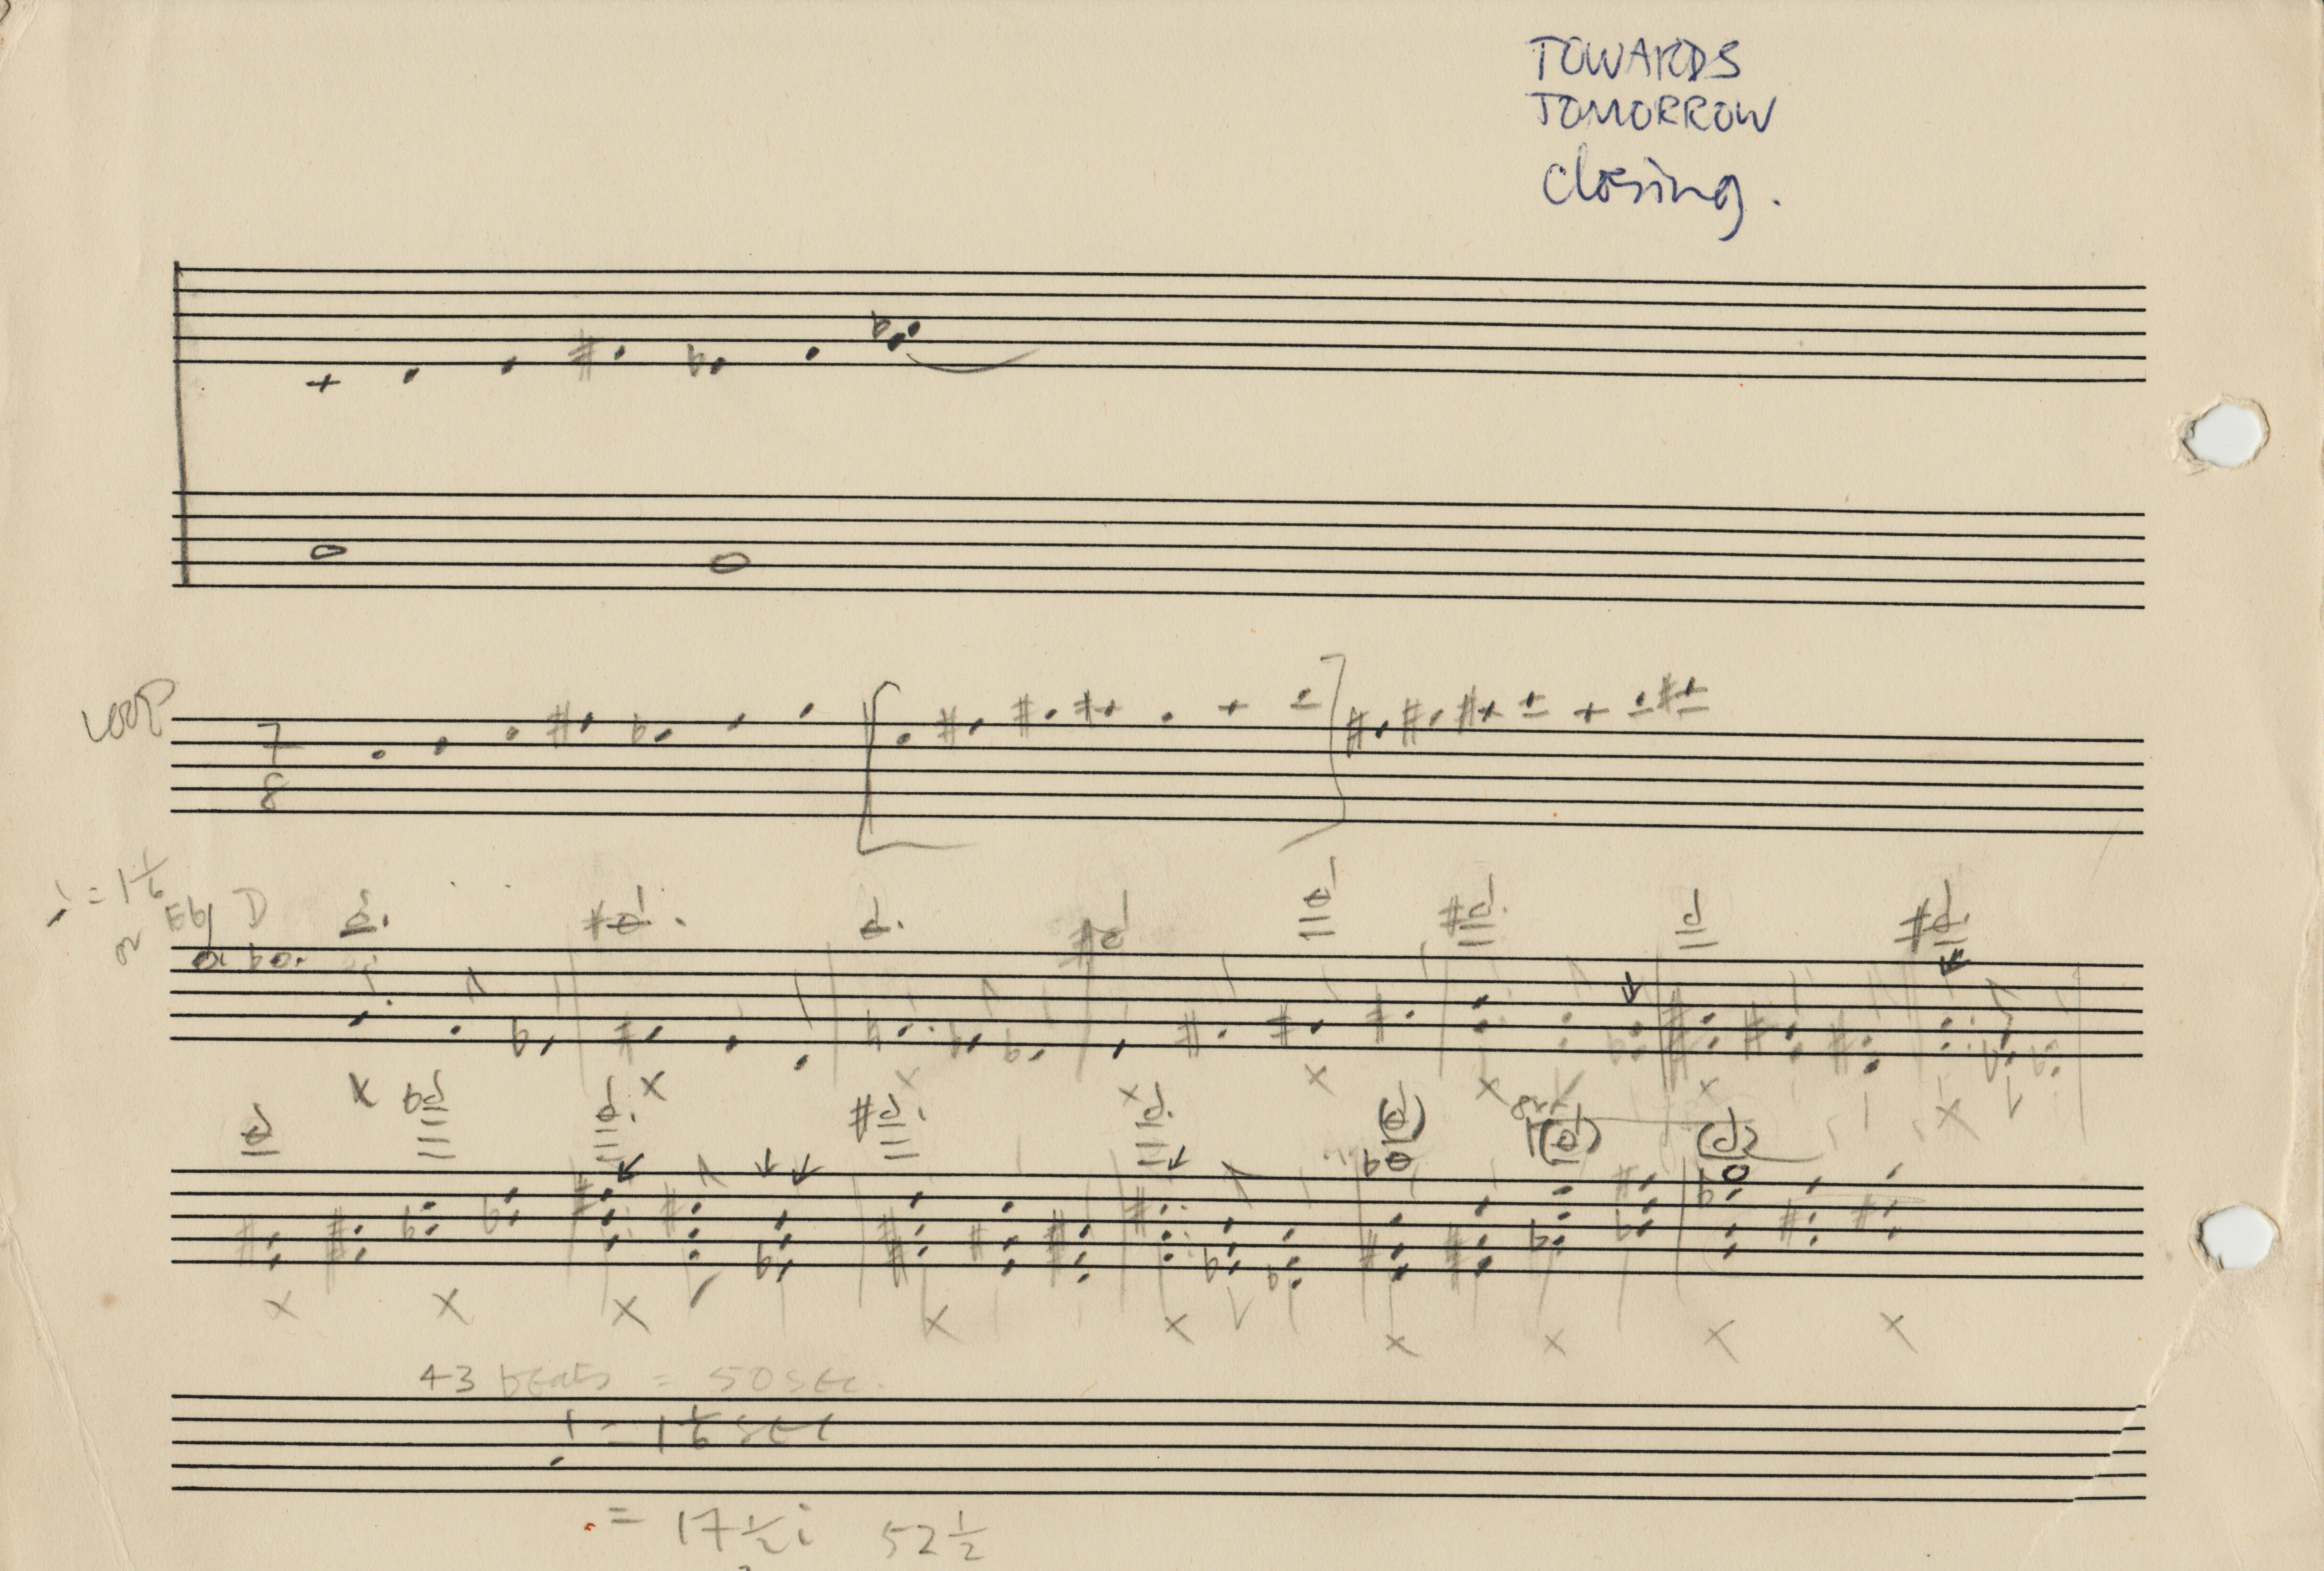 TOWARDS
TOMORROW
closing.
LOOP
7
8
♩ = 1 1/6
or Eb D
8va
43 beats = 50 SEC.
♩ = 1 1/6 SEC
= 17 1/2 i 52 1/2